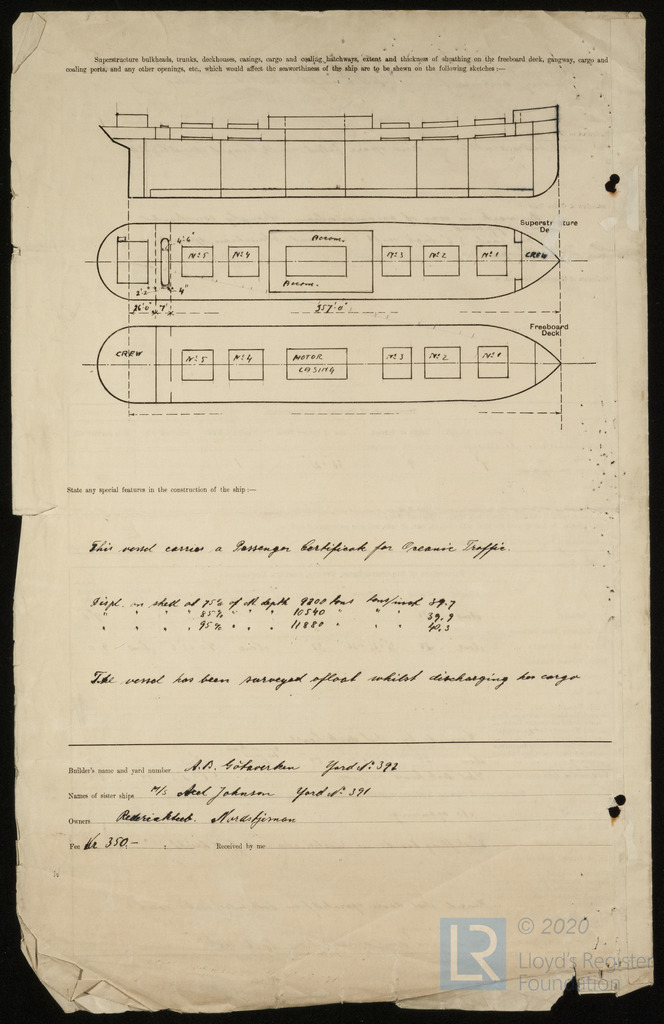 Superstructure bulkheads, trunks, deckhouses, casings, cargo and coaling hatchways, extent and thickness of sheathing on the freeboard deck, gangway, cargo and
coaling ports, and any other openings, etc., which would affect the seaworthiness of the ship are to be shewn on the following sketches:—
Superstructure
Deck
4'-6"
Nº 5
Nº 4
Accom.
Accom.
Nº 3
Nº 2
Nº 1
CREW
2'-2"
4"
26'0"
7'
357'0"
Freeboard
Deck
CREW
Nº 5
Nº 4
MOTOR
CASING
Nº 3
Nº 2
Nº 1
State any special features in the construction of the ship:—
This vessel carries a Passenger Certificate for Oceanic Traffic.
Displ. on shell at 75% of M. depth 9200 tons tons/inch 39.7
" " " " 85% " " " 10540 " " " 39.9
" " " " 95% " " " 11880 " " " 40.3
The vessel has been surveyed afloat whilst discharging her cargo
Builder's name and yard number A.B. Götaverken Yard Nº 392
Names of sister ships M/S Axel Johnson Yard Nº 391
Owners Rederiaktieb. Nordstjernan
Fee Kr 350.— : : Received by me
© 2020
LR Lloyd's Register
Foundation